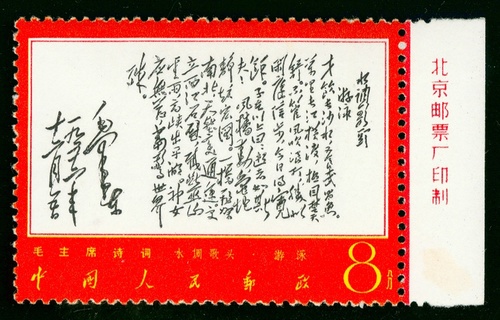 水调歌头
游泳
才饮长沙水又食武昌鱼
万里长江横渡极目楚天
舒不管风吹浪打胜似
闲庭信步今日得宽
馀子在川上曰逝者如斯
夫风樯动龟蛇
静起宏图一桥飞架
南北天堑变通途更
立西江石壁截断巫山
云雨高峡出平湖神女
应无恙当惊世界
殊
毛泽东
一九五六年
十二月五日
毛主席诗词 水调歌头·游泳
中国人民邮政 8分
北京邮票厂印制